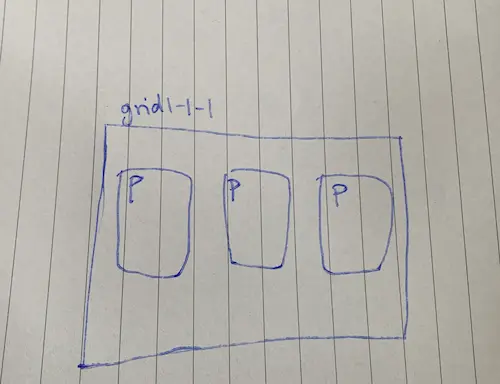 grid1-1-1
P P P